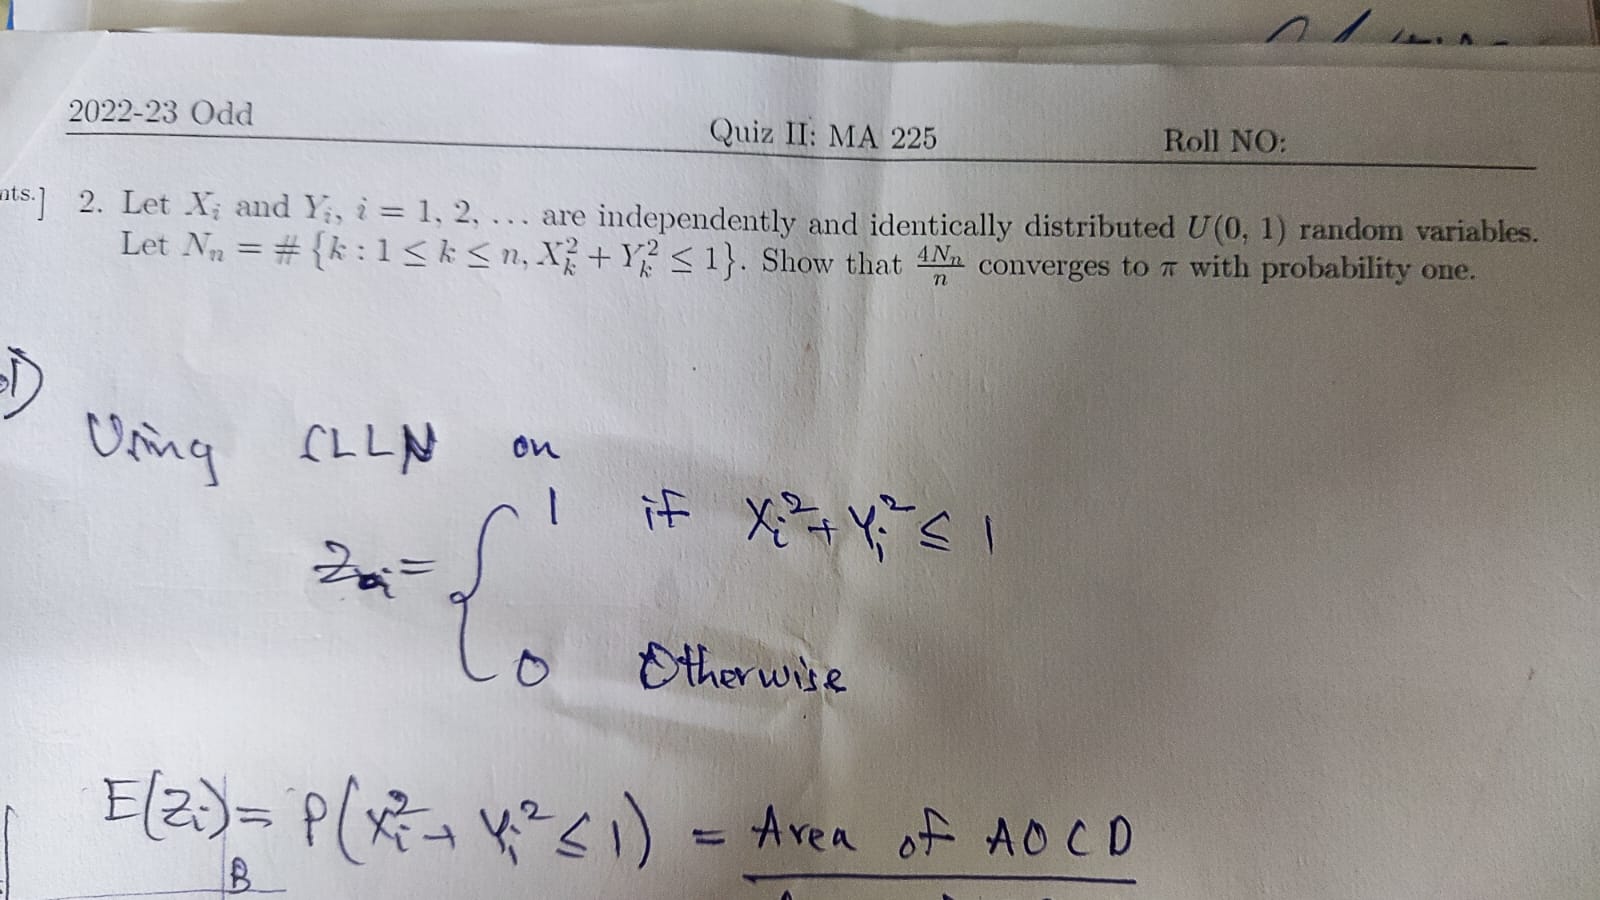 2022-23 Odd
Quiz II: MA 225
Roll NO:
nts.] 2. Let Xᵢ and Yᵢ, i = 1, 2, ... are independently and identically distributed U(0, 1) random variables.
Let Nₙ = # {k : 1 ≤ k ≤ n, Xₖ² + Yₖ² ≤ 1}. Show that 4Nₙ/n converges to π with probability one.
Using SLLN on
Zᵢ = { 1 if Xᵢ² + Yᵢ² ≤ 1
0 Otherwise
E(Zᵢ) = P(Xᵢ² + Yᵢ² ≤ 1) = Area of AOCD
B